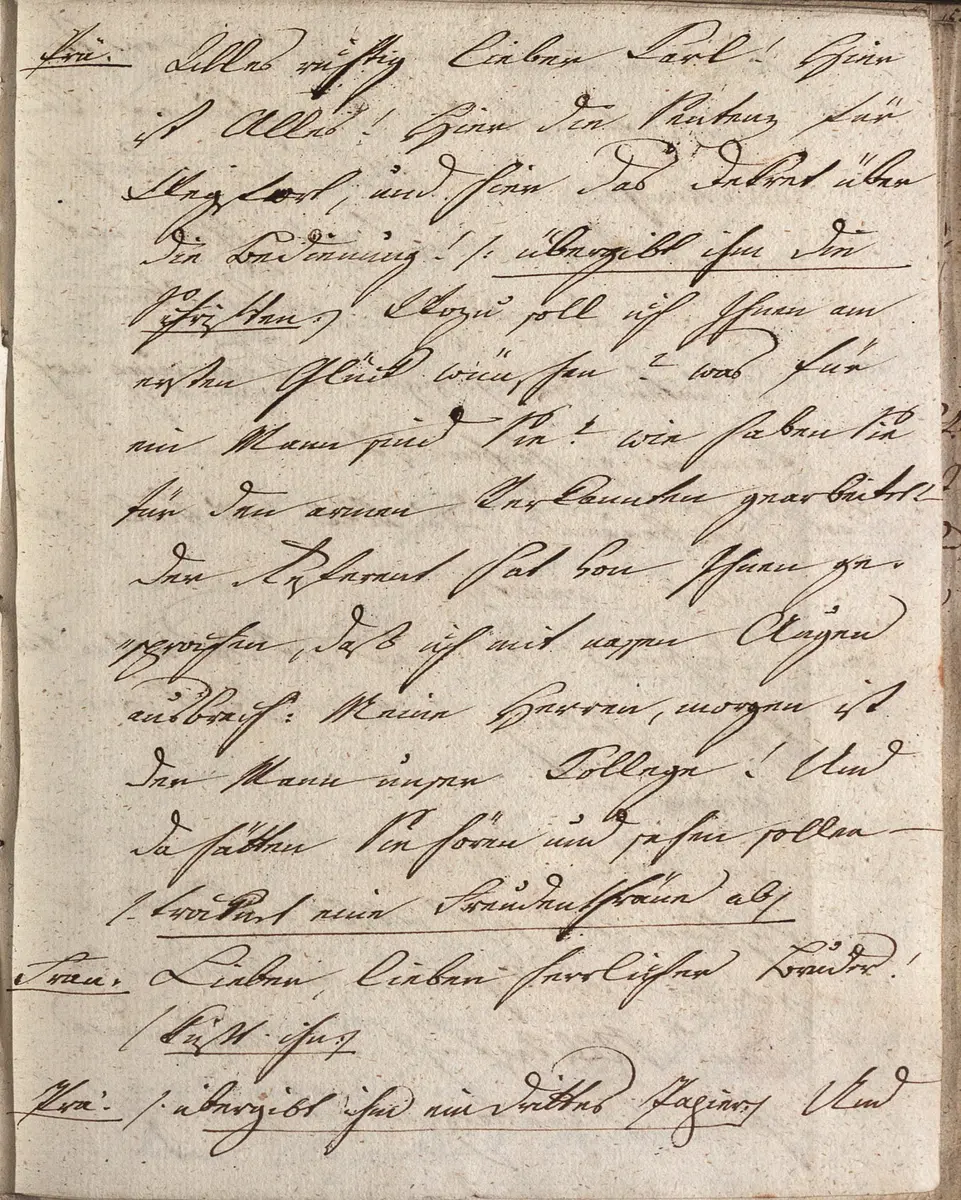 Prä. Alles richtig lieber Karl! Hier
ist Alles! Hier die Sentenz für
Wegfort, und hier das Dekret über
die Bedienung! /: übergibt ihm die
Schriften :/ Wozu soll ich Ihnen am
ersten Glück wünschen? was für
ein Mann sind Sie? wie haben Sie
für den armen Verkannten gearbeitet!
Der Referent hat von Ihnen ge-
sprochen, daß ich mit nassen Augen
ausbrach: Meine Herren, morgen ist
der Mann unser College! Und
da hätten Sie hören und sehen sollen —
/: trocknet eine Freudenthräne ab /
Frau. Lieber, lieber herrlicher Bruder!
/ küßt ihn :/
Prä. /: übergibt ihm ein drittes Papier :/ Und